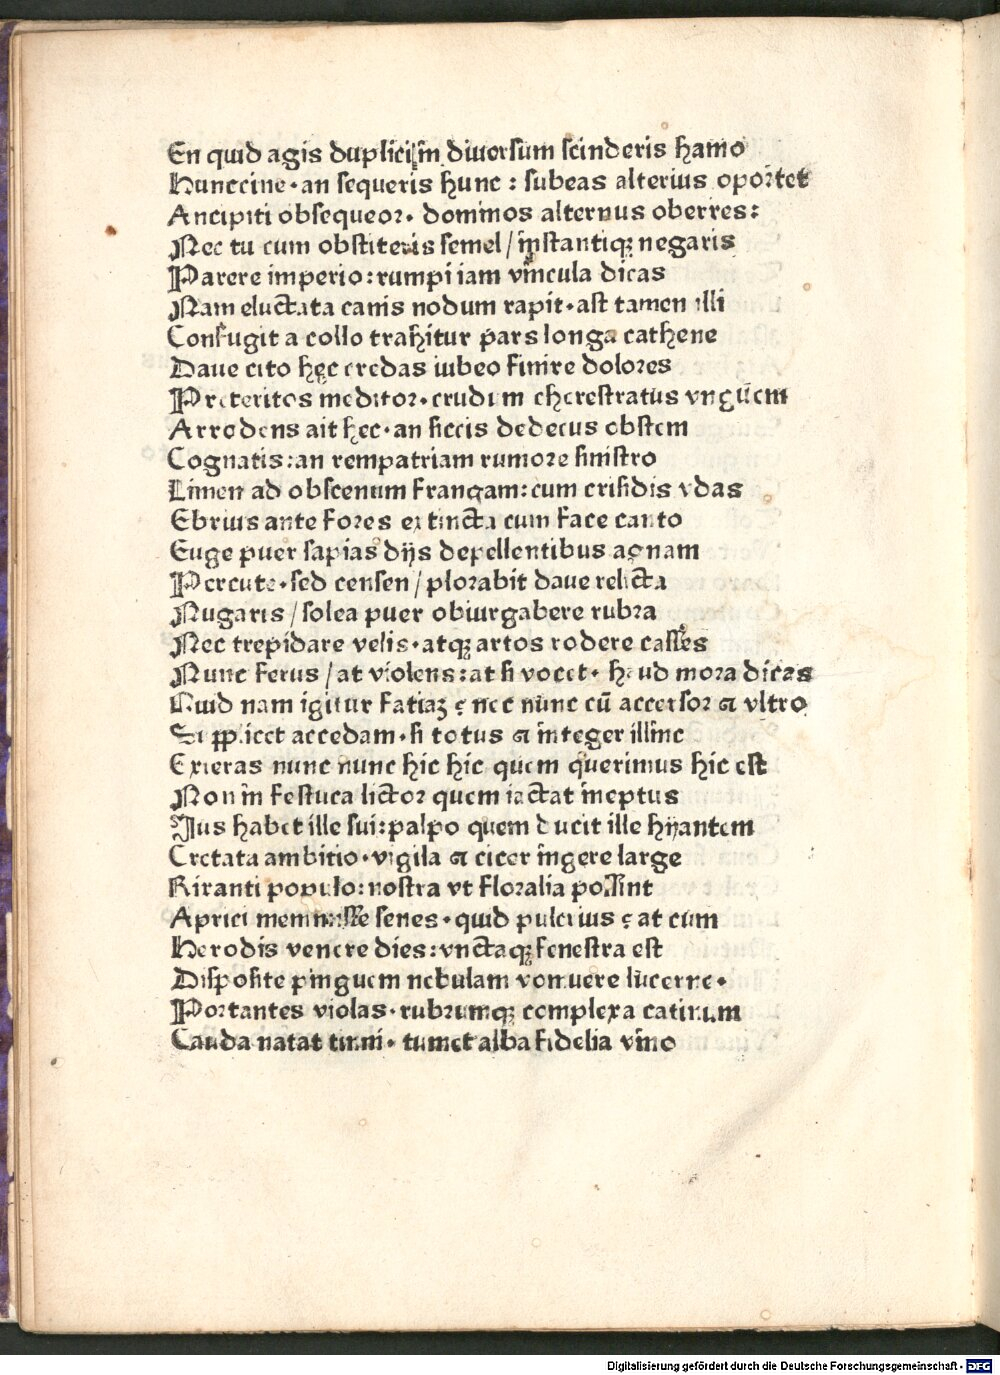 En quid agis duplici in diuersum scinderis hamo
Hunccine · an sequeris hunc : subeas alterius oportet
Ancipiti obsequeor · dominos alternus oberres :
Nec tu cum obstiteris semel / instantiqꝫ negaris
Parere imperio : rumpi iam vincula dicas
Nam eluctata canis nodum rapit · ast tamen illi
Confugit a collo trahitur pars longa cathene
Daue cito hęc credas iubeo finire dolores
Preteritos meditor · crudum cherestratus vnguem
Arrodens ait hec · an siccis dedecus obstem
Cognatis : an rempatriam rumore sinistro
Limen ad obscenum frangam : cum crisidis vdas
Ebrius ante fores extincta cum face canto
Euge puer sapias dijs depellentibus agnam
Percute · sed censen / plorabit daue relicta
Nugaris / solea puer obiurgabere rubra
Nec trepidare velis · atqꝫ artos rodere casses
Nunc ferus / at violens : at si vocet · haud mora dicas
Quid nam igitur fatiaꝫ ę nec nunc cū accersor ⁊ vltro
accedam · si totus ⁊ integer illinc
Exieras nunc nunc hic hic quem querimus hic est
Non in festuca lictor quem iactat ineptus
Jus habet ille sui : palpo quem ducit ille hyantem
Cretata ambitio · vigila ⁊ cicer ingere large
Riranti populo : nostra vt floralia possint
Aprici meminisse senes · quid pulcrius ę at cum
Herodis venere dies : vnctaqꝫ fenestra est
Disposite pinguem nebulam vomuere lucerne ·
Portantes violas · rubrumqꝫ complexa catinum
Cauda natat tinni · tumet alba fidelia vino
Digitalisierung gefördert durch die Deutsche Forschungsgemeinschaft - DFG